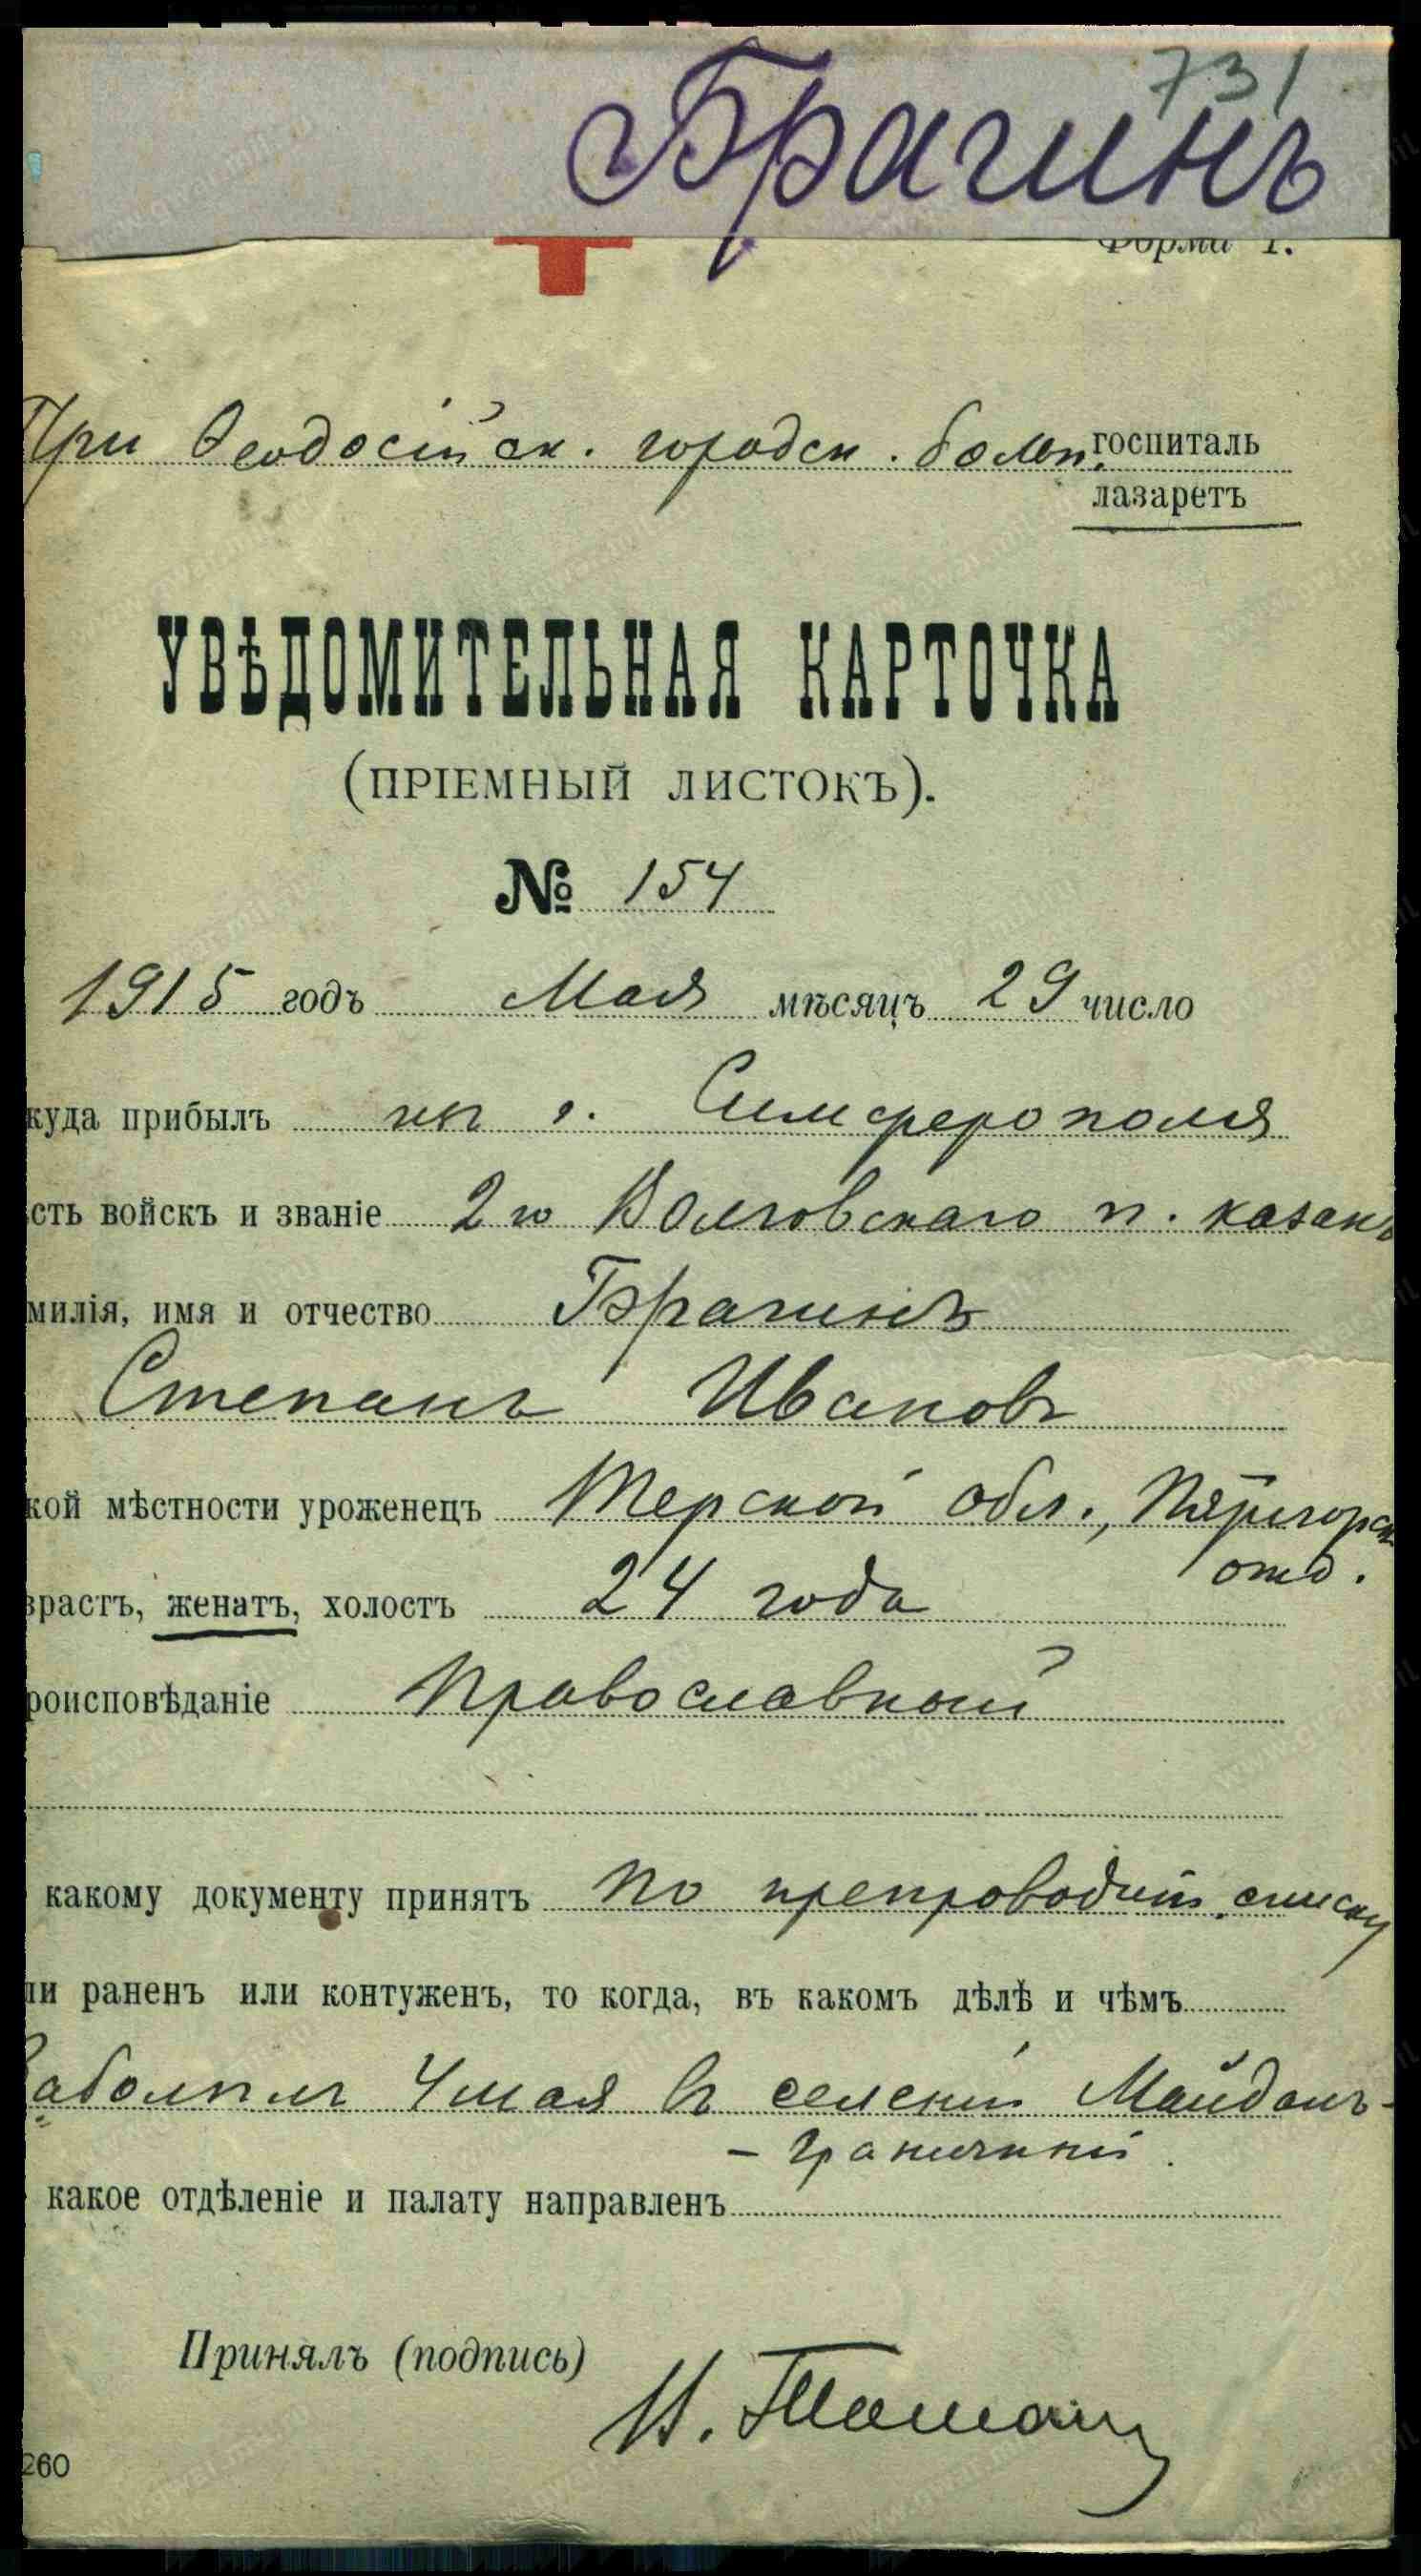 731
Брагинъ
Форма 1.
При Ѳеодосійск. городск. больн. госпиталь
лазаретъ
УВѢДОМИТЕЛЬНАЯ КАРТОЧКА
(ПРІЕМНЫЙ ЛИСТОКЪ).
№ 154
1915 годъ Мая мѣсяцъ 29 число
куда прибылъ из г. Симферополя
сть войскъ и званіе 2го Волговскаго п. казакъ
милія, имя и отчество Брагинъ
Степанъ Ивановъ
кой мѣстности уроженецъ Терской обл., Пятигорск.
отд.
зрастъ, женатъ, холостъ 24 года
роисповѣданіе Православный
какому документу принятъ по препроводит. списку
ли раненъ или контуженъ, то когда, въ какомъ дѣлѣ и чѣмъ
Заболѣлъ 4 мая въ селеніи Майданъ-
- Граничній.
какое отдѣленіе и палату направленъ
Принялъ (подпись)
260
www.gwar.mil.ru